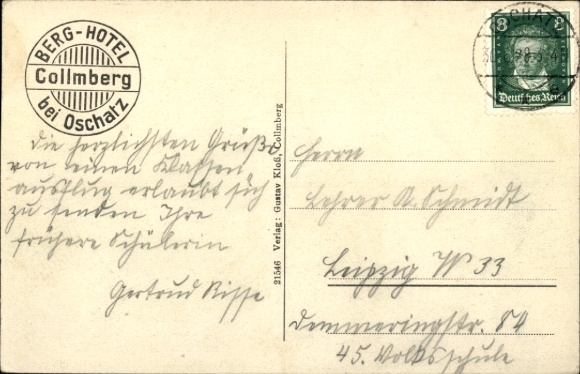 BERG-HOTEL
Collmberg
bei Oschatz
die herzlichsten Grüße
von einen Klassen
ausflug erlaubt sich
zu senden Ihre
frühere Schülerin
Gertrud Risse
21546 Verlag: Gustav Kloß, Collmberg
OSCHATZ
8 8
Deutsches Reich
Herrn
Lehrer A. Schmidt
Leipzig W 33
Demmeringstr. 84
45. Volksschule